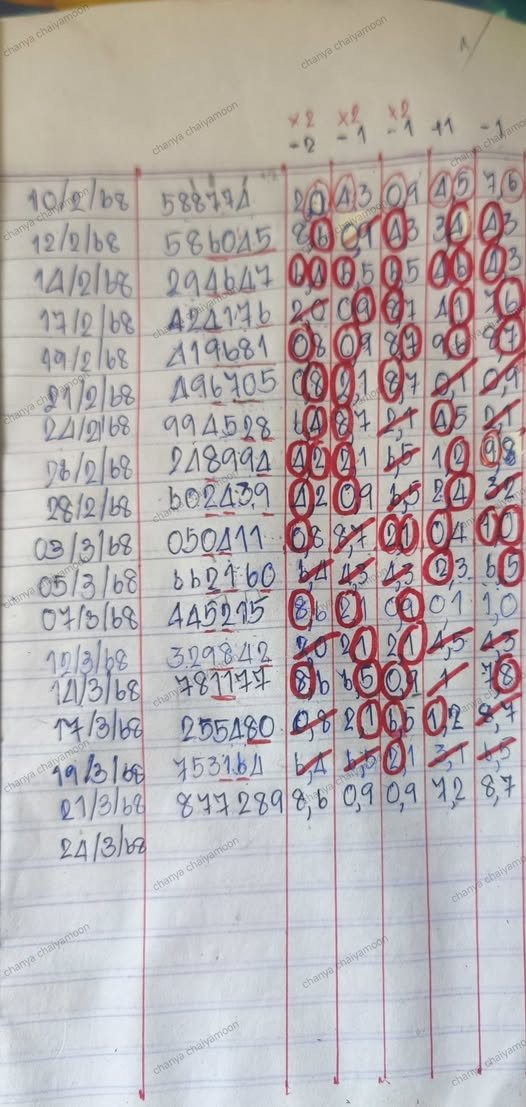 ×2 ×2 ×2
-2 -1 -1 +1 -1
10/2/68 588774 20 4,3 0,9 4,5 7,6
12/2/68 586045 8,6 0,9 43 34 43
14/2/68 294647 64 6,5 65 46 43
17/2/68 424176 20 09 8,7 41 76
19/2/68 419681 08 09 87 96 87
21/2/68 496705 08 21 8,7 0,1 0,9
24/2/68 994528 64 8,7 2,1 45 2,1
26/2/68 248994 42 21 6,5 12 9,8
28/2/68 602439 42 09 6,5 24 32
03/3/68 050411 0,8 8,7 21 04 10
05/3/68 662160 6,4 4,3 4,3 2,3 65
07/3/68 445215 8,6 21 09 01 1,0
12/3/68 329842 20 21 21 4,5 4,3
14/3/68 781177 86 6,5 0,9 78
17/3/68 255480 0,8 2,1 6,5 1,2 8,7
19/3/68 753164 6,4 6,5 2,1 3,1 6,5
21/3/68 877289 8,6 0,9 0,9 7,2 8,7
24/3/68
chanya chaiyamoon